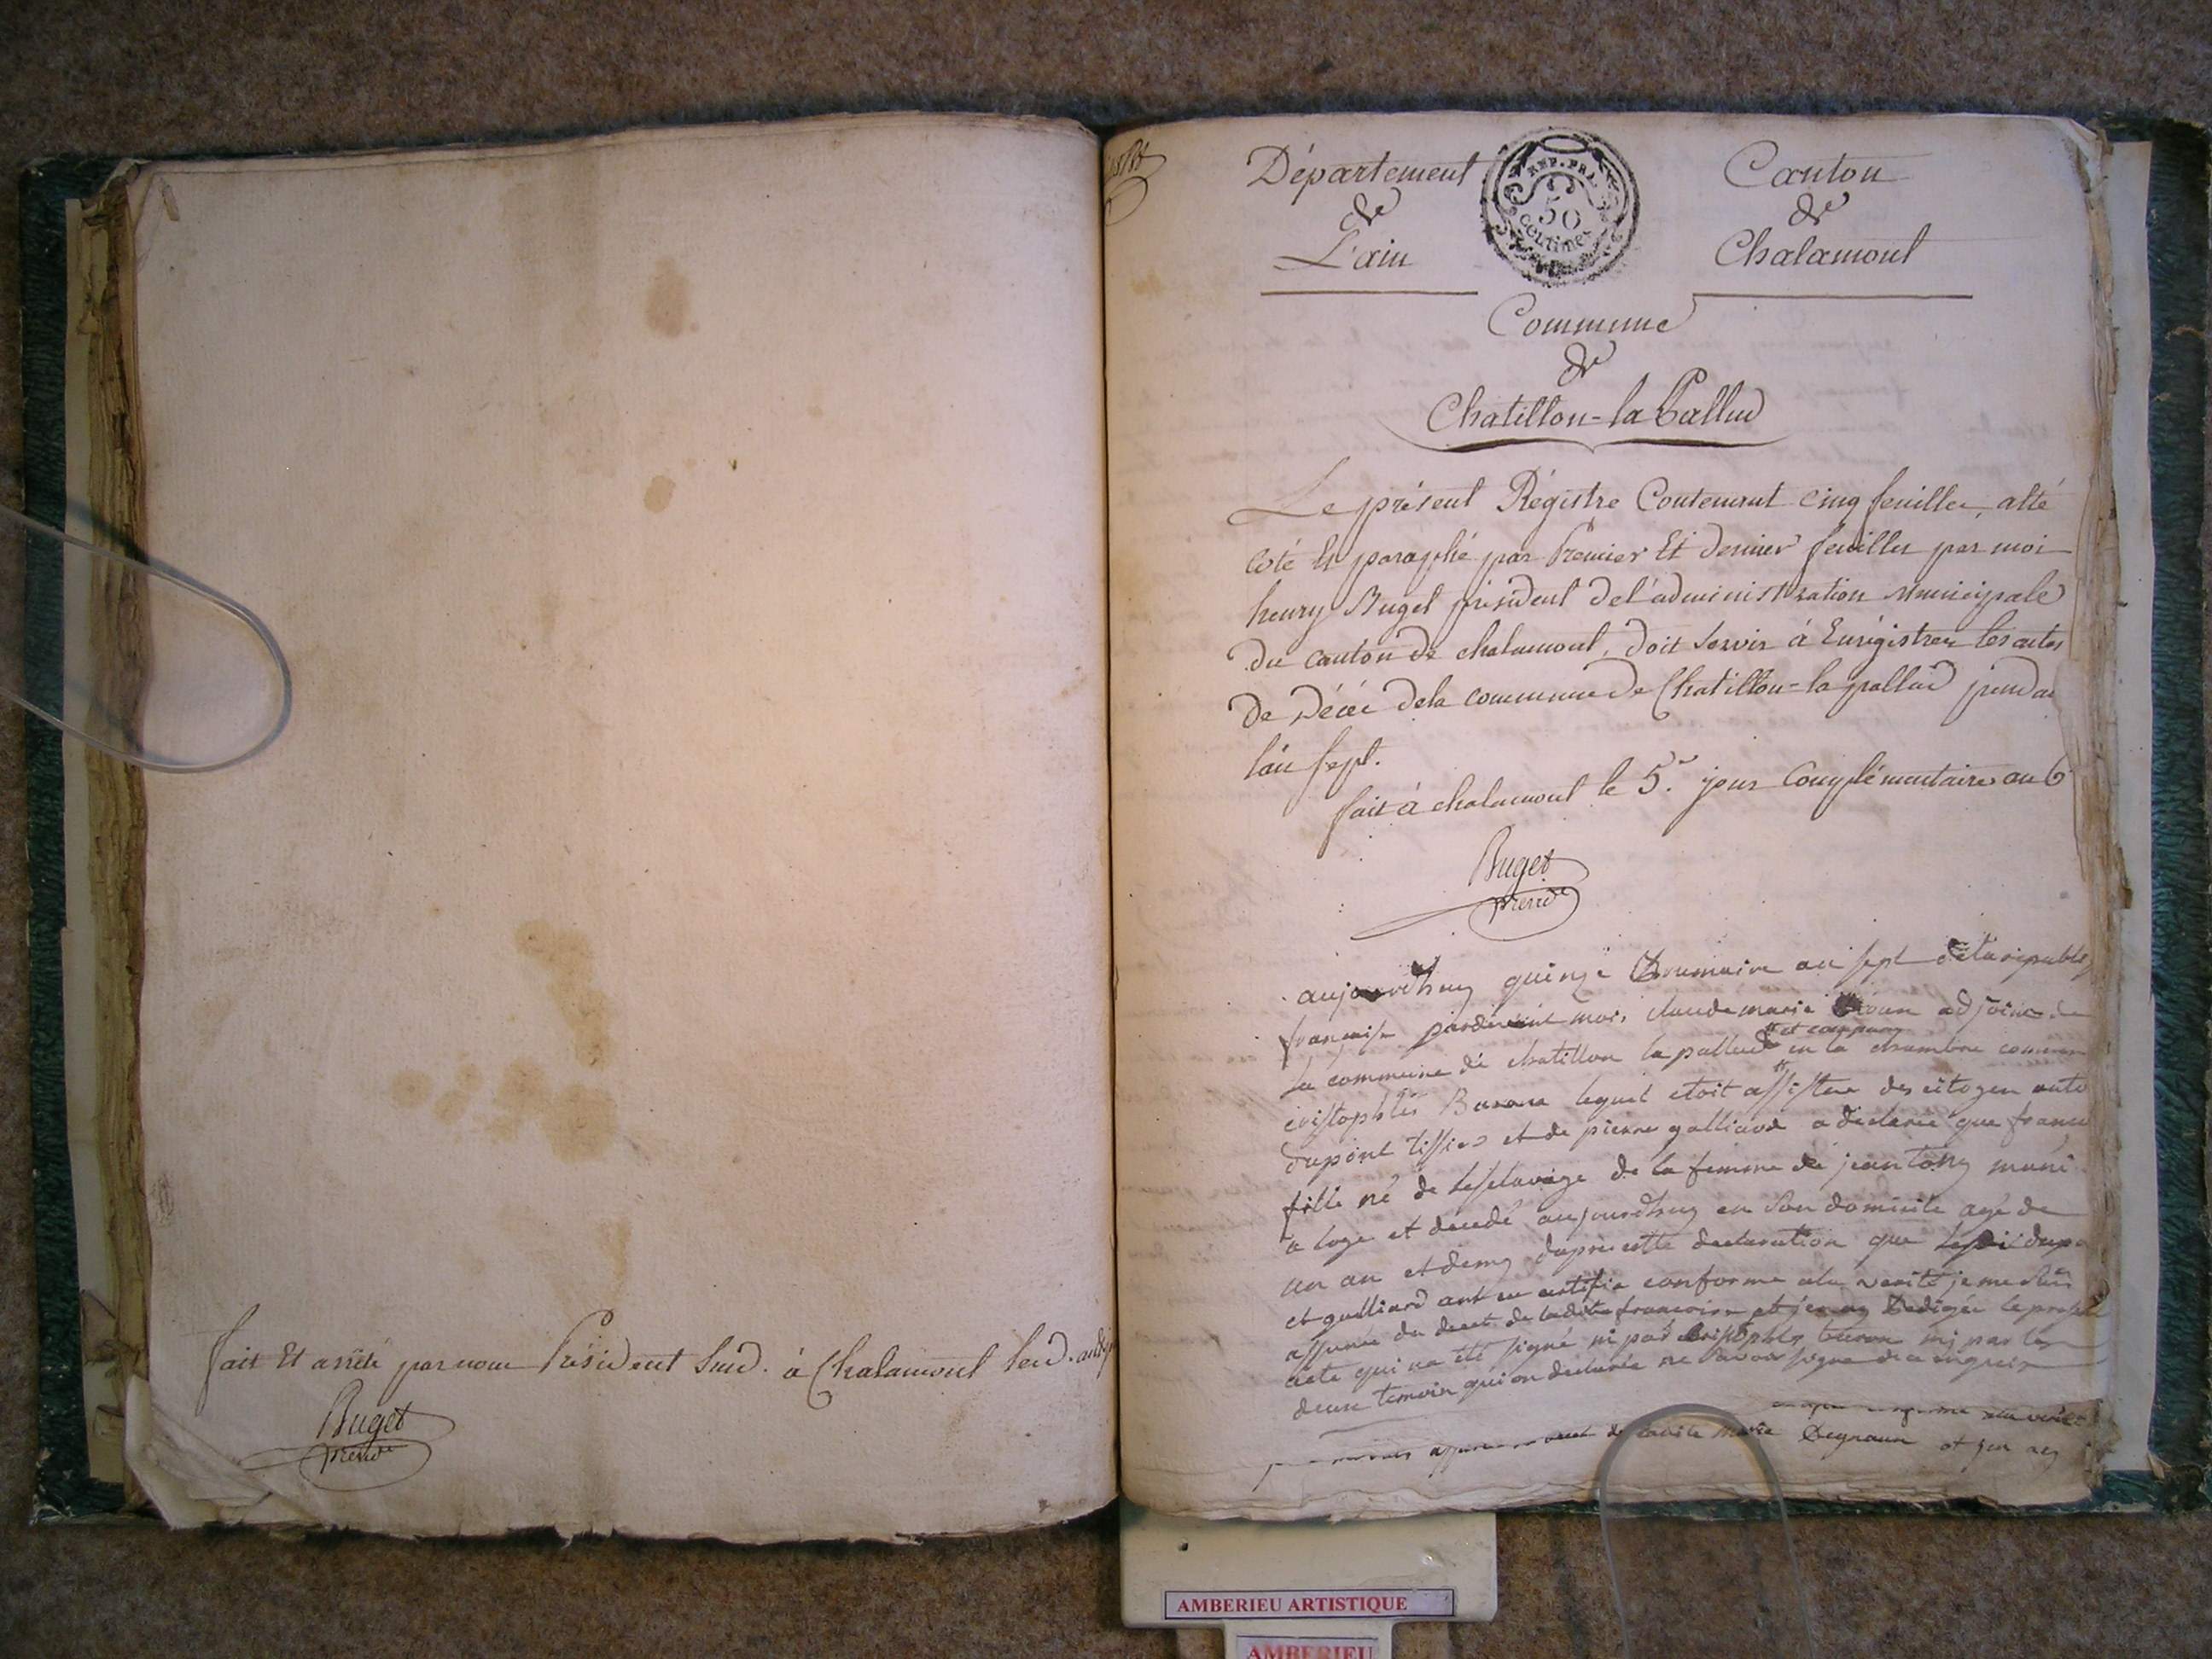 fait Et arrêté par nous Président Susd. à Chalamont Lesd.
Buget
présid.
Département
de
L'ain
REP. FRA.
50
centimes
Canton
de
Chalamont
Commune
de
Chatillon-la Pallud
Le présent Régistre Contenant cinq feuilles, alté
Coté Et paraphé par Premier Et dernier feuilles par moi
henry Buget président de l'administration Municipale
du Canton de chalamont, doit Servir à Enrégistrer les actes
de Décéc dela commune de Chatillon-la pallud penda
l'an Sept.
fait à chalamont le 5.e jour Complémentaire an 6
Buget
présid.
aujourdhuy quinze Brumaire an sept de la republiq
francaise pardevant moi, claude marie adjoint de
la commune de chatillon la pallud en la chambre commune
et comparu
cristophles Buron lequel etoit assister des citogen anto
dupont tissier et de pierre galliard a declarée que franc
fille né de de la femme de jean tony
a loge et décédé aujourdhuy en son domicile agé de
un an et demy dapres cette declaration que
et galliard ont certifie conforme ala verité je me suis
assurée du decet de ladite francoise et j'en ay Redigée le present
acte qui na été signé ni par cristophles buron nij par les
deux temoin qui on declarée ne savoir signe de ce enquis
conforme ala verité
assuré du decet de ladite marie Degraun et jen ay
AMBERIEU ARTISTIQUE
AMBERIEU